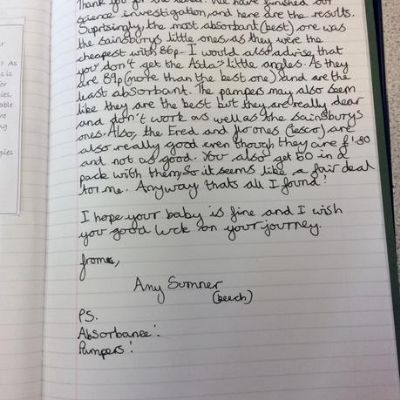 Thank you for the
We have finished our
science investigation, and here are the results.
Suprisingly the most absorbant (best) one was
the Sainsburys little ones as they were the
cheapest with 86p. I would also advise, that
you don't get the Asda little angels. As they
are 89p (more than the best one) and are the
least absorbant. The pampers may also seem
like they are the best but they are really dear
and don't work as well as the Sainsburys
ones. Also, the Fred and flo ones (tesco) are
also really good even though they are £1.80
and not as good. You also get 50 in a
pack with them, so it seems like a fair deal
for me. Anyway thats all I found!
I hope your baby is fine and I wish
you good luck on your journey.
from,
Amy Sumner
(beech)
P.S.
Absorbance:
Pampers: